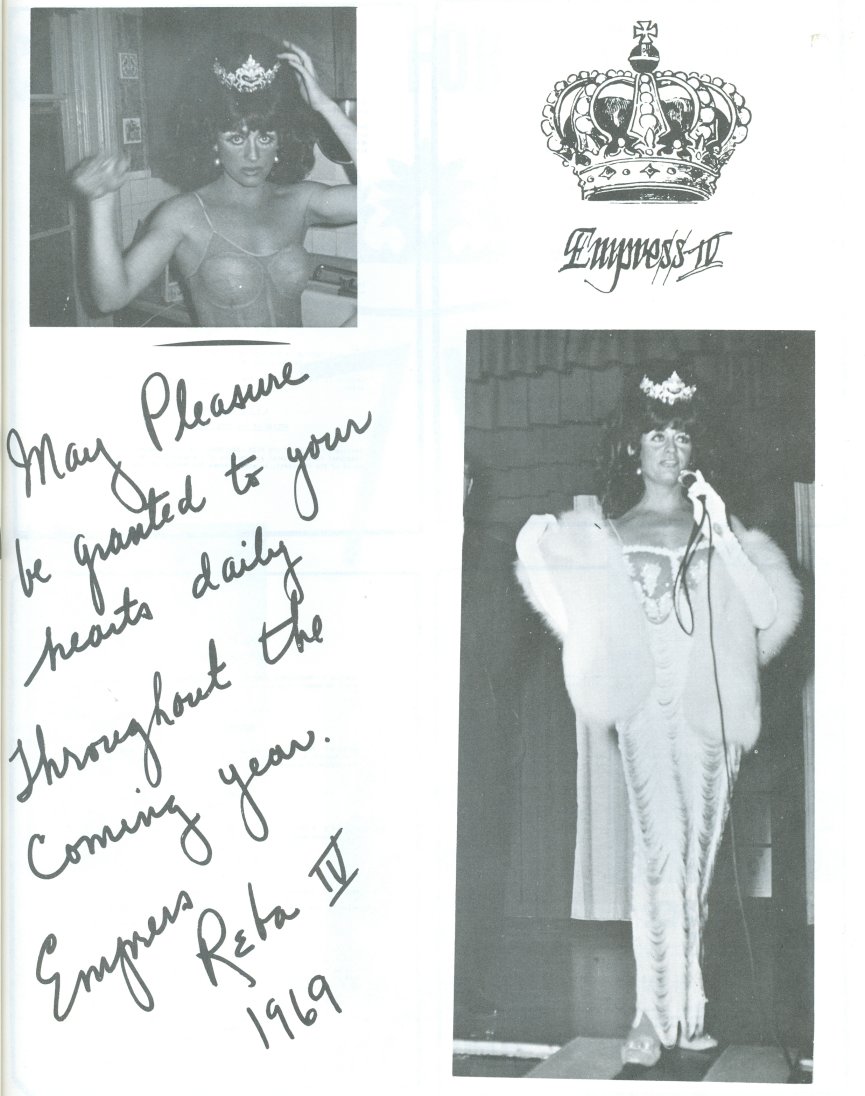 Empress IV
May Pleasure
be granted to your
hearts daily
Throughout the
Coming year.
Empress
Reba IV
1969